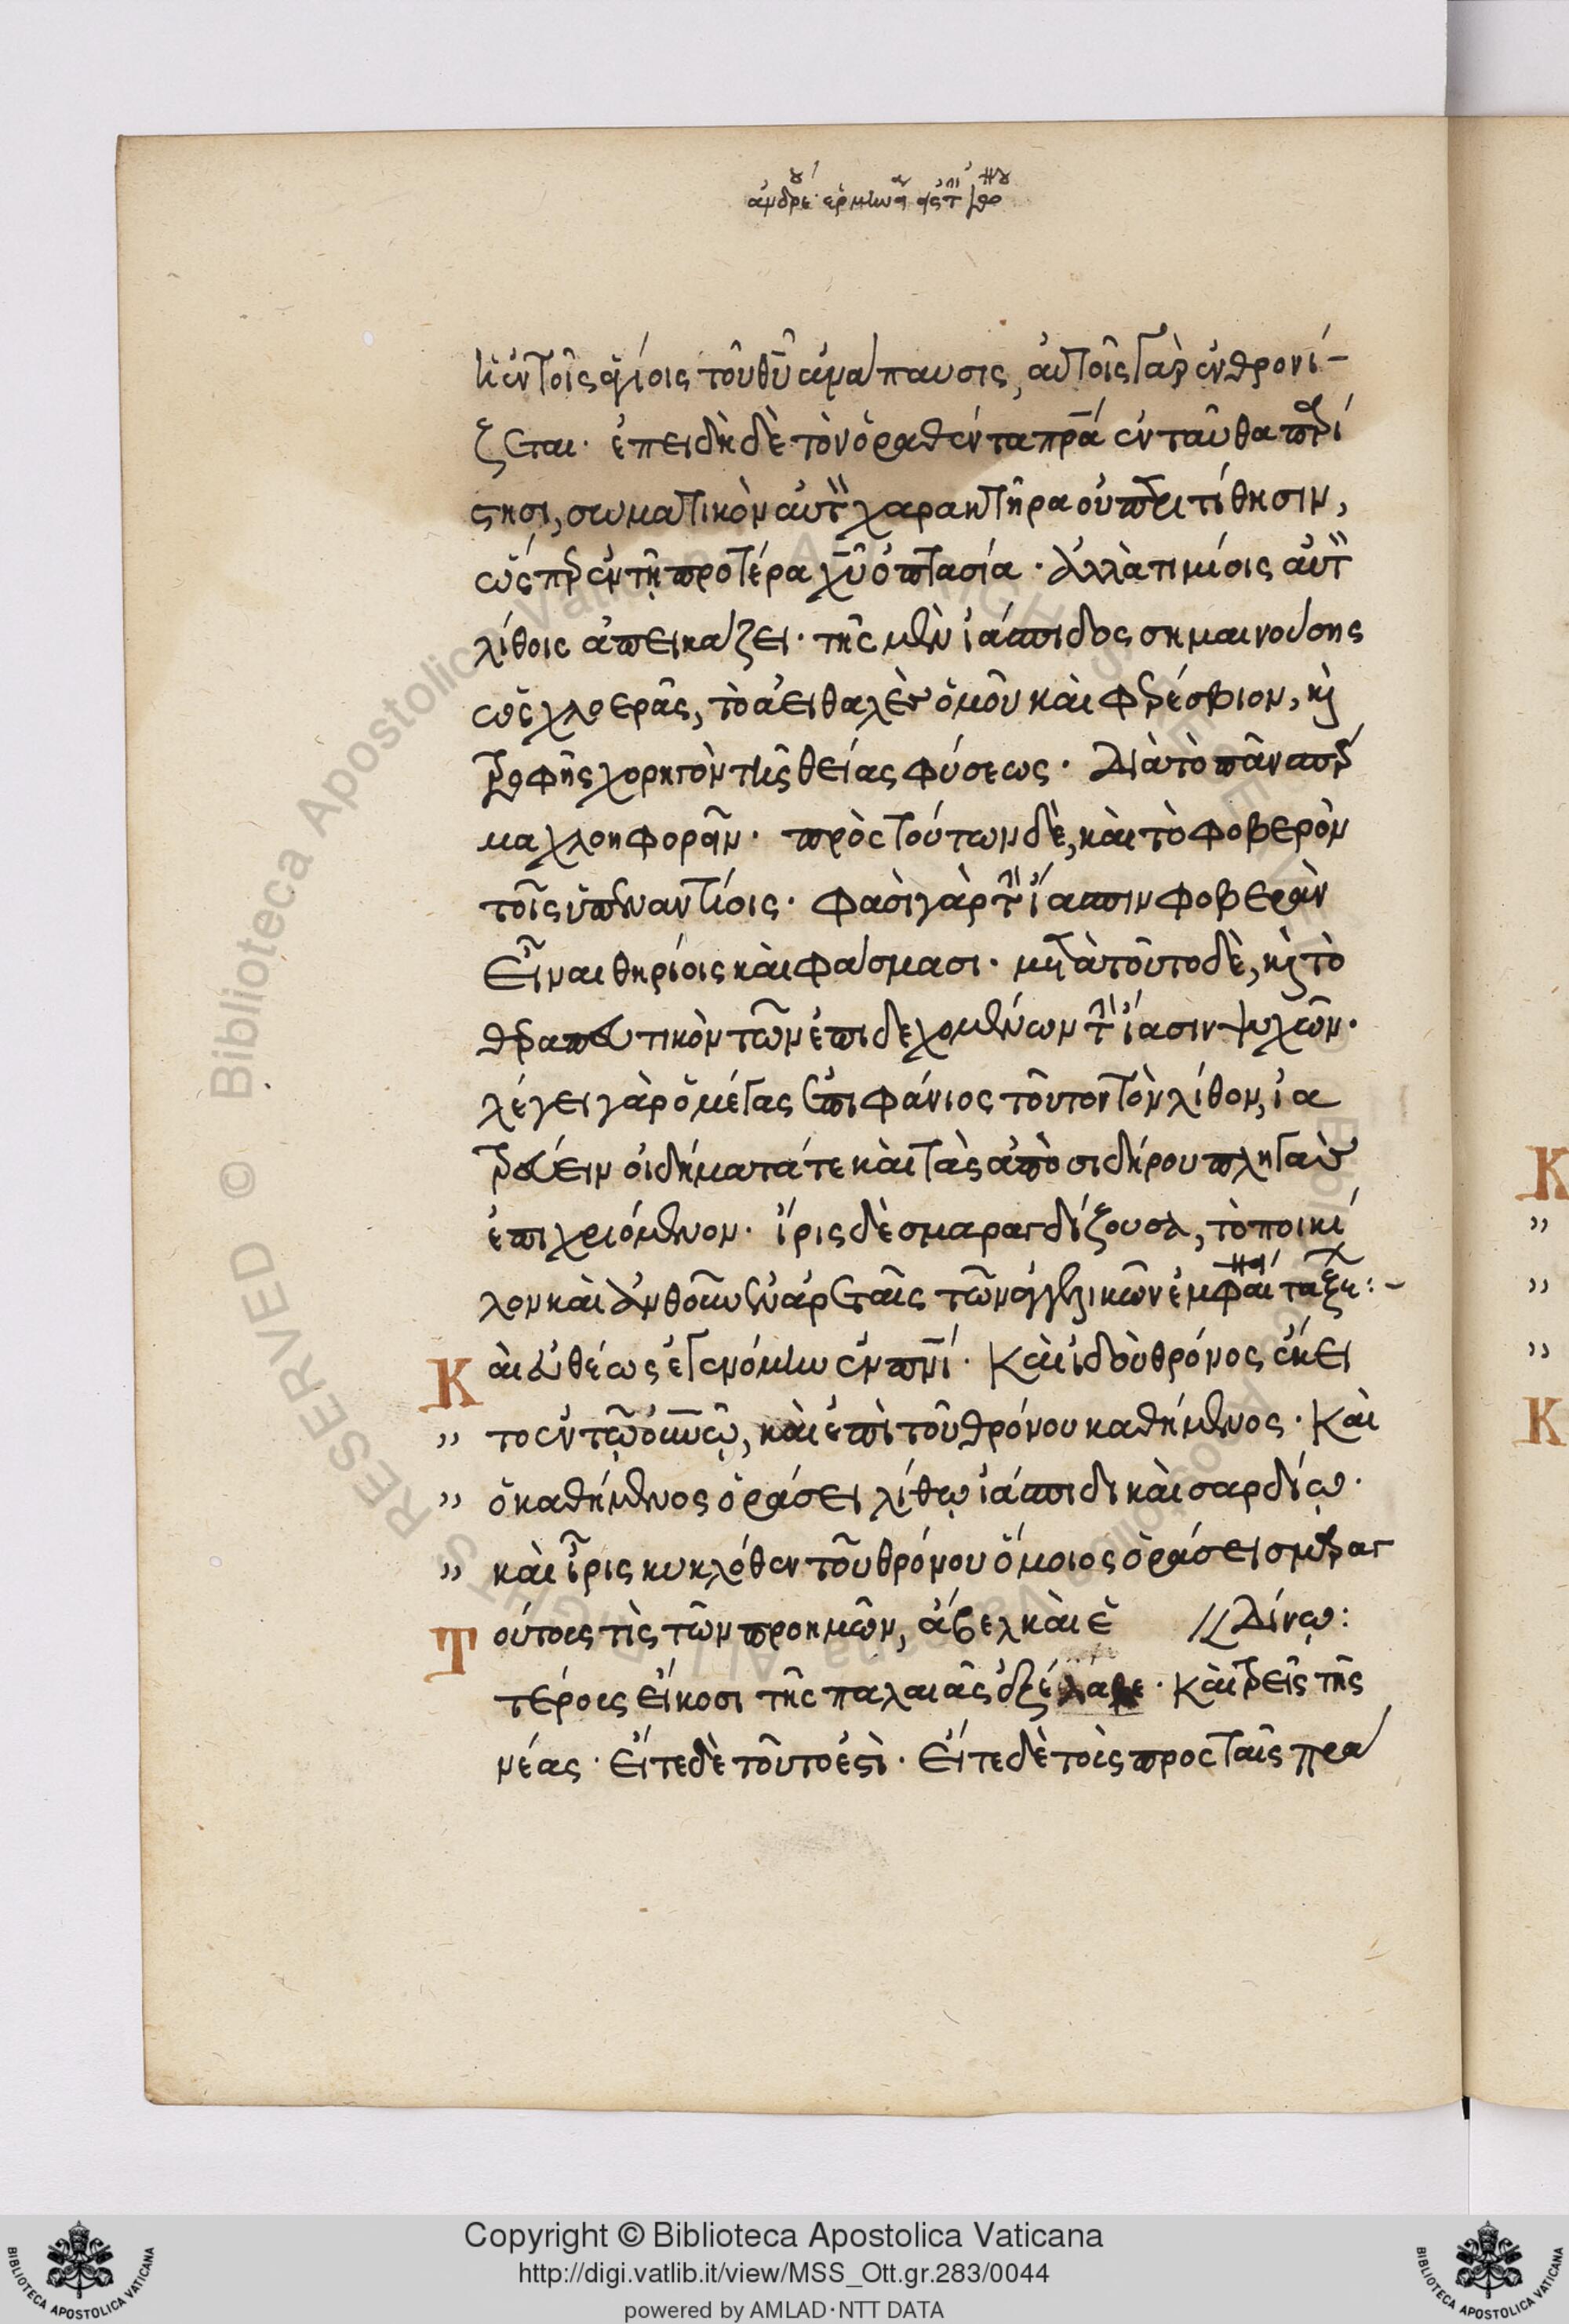 ἡ ἐν τοῖς ἁγίοις τοῦ θυ ἀνάπαυσις, αὐτοῖς γὰρ ἐνθρονί-
ζεται· ἐπειδὴ δὲ τὸν ὁραθέντα πρα ἐνταῦθα παρί
στησι, σωματικὸν αὐτῷ χαρακτῆρα οὐ περιτίθησιν,
ὥσπερ ἐν τῇ προτέρα χυ ὀπτασία· ἀλλὰ τιμίοις αὐτὸν
λίθοις ἀπεικάζει· τῆς μὲν ἰάσπιδος σημαινούσης
ὡς χλοερᾶς, τὸ ἀειθαλὲς ὁμοῦ καὶ φερέσβιον, καὶ
τροφῆς χορηγὸν τῆς θείας φύσεως· διὰ τὸ πᾶν σπέρ
μα χλοηφορεῖν· πρὸς τούτων δὲ, καὶ τὸ φοβερὸν
τοῖς ὑπεναντίοις· φασὶ γὰρ τὴν ἴασπιν φοβερὰν
εἶναι θηρίοις καὶ φάσμασι· μετὰ τοῦτο δὲ, καὶ τὸ
θεραπευτικὸν τῶν ἐπιδεχομένων τὴν ἴασιν ψυχῶν·
λέγει γὰρ ὁ μέγας ἐπιφάνιος τοῦτον τὸν λίθον, ἰα
τρεύειν οἰδήματά τε καὶ τὰς ἀπὸ σιδήρου πληγὰς
ἐπιχριόμενον· ἴρις δὲ σμαραγδίζουσα, τὸ ποικί
λον καὶ ἀνθοῦν ἐν ἀρεταῖς τῶν ἀγγελικῶν ἐμφαίνει τάξεων:-
Καὶ εὐθέως ἐγενόμην ἐν πνι· Καὶ ἰδοὺ θρόνος ἔκει
" το ἐν τῷ οὐνῷ, καὶ ἐπὶ τοῦ θρόνου καθήμενος· Καὶ
" ὁ καθήμενος ὁράσει λίθῳ ἰάσπιδι καὶ σαρδίῳ·
" καὶ ἶρις κυκλόθεν τοῦ θρόνου ὅμοιος ὁράσει σμαραγ
Τούτοις τὶς τῶν προ ημῶν, ἄβελ καὶ ἑ //δίνῳ:
τέροις εἴκοσι τῆς παλαιᾶς · καὶ τρεῖς τῆς
νέας· Εἴτε δὲ τοῦτο ἐστὶ· Εἴτε δὲ τοὶς πρὸς ταῖς πρά
Κ
"
"
"
Κ
Copyright © Biblioteca Apostolica Vaticana
http://digi.vatlib.it/view/MSS_Ott.gr.283/0044
powered by AMLAD·NTT DATA
BIBLIOTECA APOSTOLICA VATICANA
BIBLIOTECA APOSTOLICA VATICANA